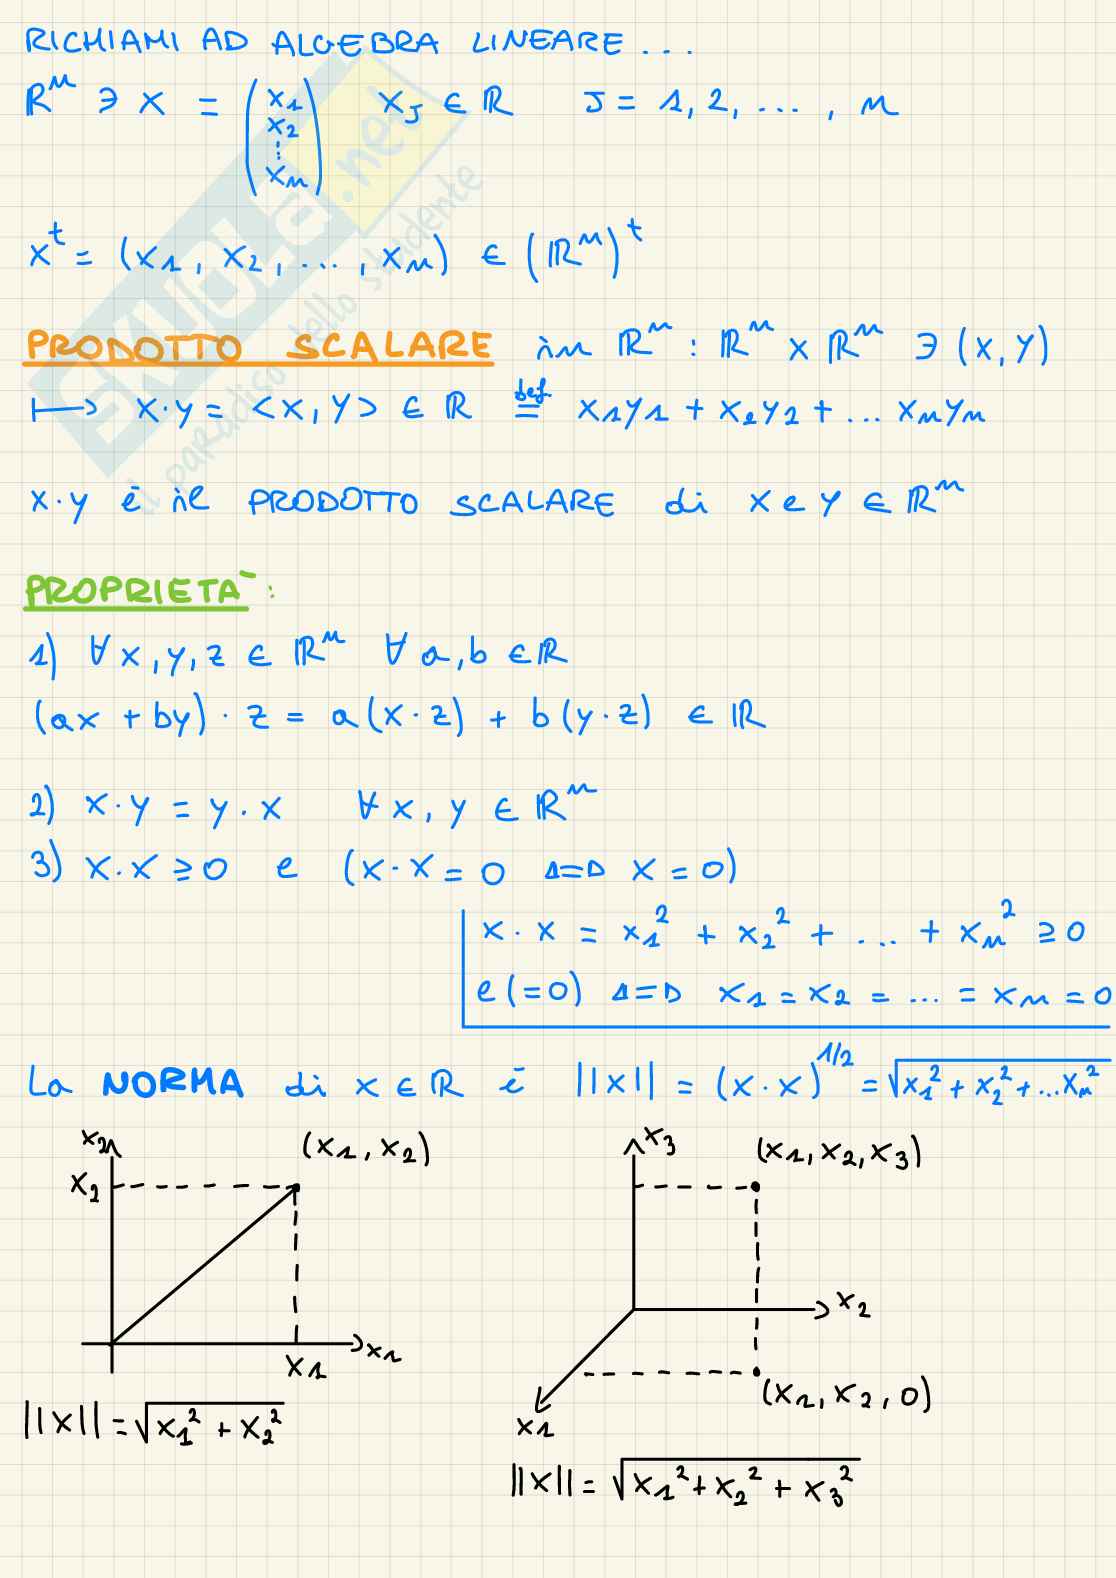 RICHIAMI AD ALGEBRA LINEARE ...
ℝⁿ ∋ x = (x₁ x₂ ⋮ xₙ) xⱼ ∈ ℝ J = 1, 2, ..., n
xᵗ = (x₁, x₂, ..., xₙ) ∈ (ℝⁿ)ᵗ
PRODOTTO SCALARE in ℝⁿ : ℝⁿ x ℝⁿ ∋ (x, y)
⟼ x·y = <x, y> ∈ ℝ def = x₁y₁ + x₂y₂ + ... xₙyₙ
x·y è il PRODOTTO SCALARE di x e y ∈ ℝⁿ
PROPRIETÀ:
1) ∀ x, y, z ∈ ℝⁿ ∀ a, b ∈ ℝ
(ax + by) · z = a(x·z) + b(y·z) ∈ ℝ
2) x·y = y·x ∀ x, y ∈ ℝⁿ
3) x·x ≥ 0 e (x·x = 0 ⇔ x = 0)
x·x = x₁² + x₂² + ... + xₙ² ≥ 0
e (=0) ⇔ x₁ = x₂ = ... = xₙ = 0
La NORMA di x ∈ ℝ è ||x|| = (x·x)^1/2 = √x₁² + x₂² + ... xₙ²
x₂
(x₁, x₂)
x₂
x₁
x₁
||x|| = √x₁² + x₂²
x₃
(x₁, x₂, x₃)
x₂
(x₁, x₂, 0)
x₁
||x|| = √x₁² + x₂² + x₃²
SKUOLA.net
il paradiso dello studente